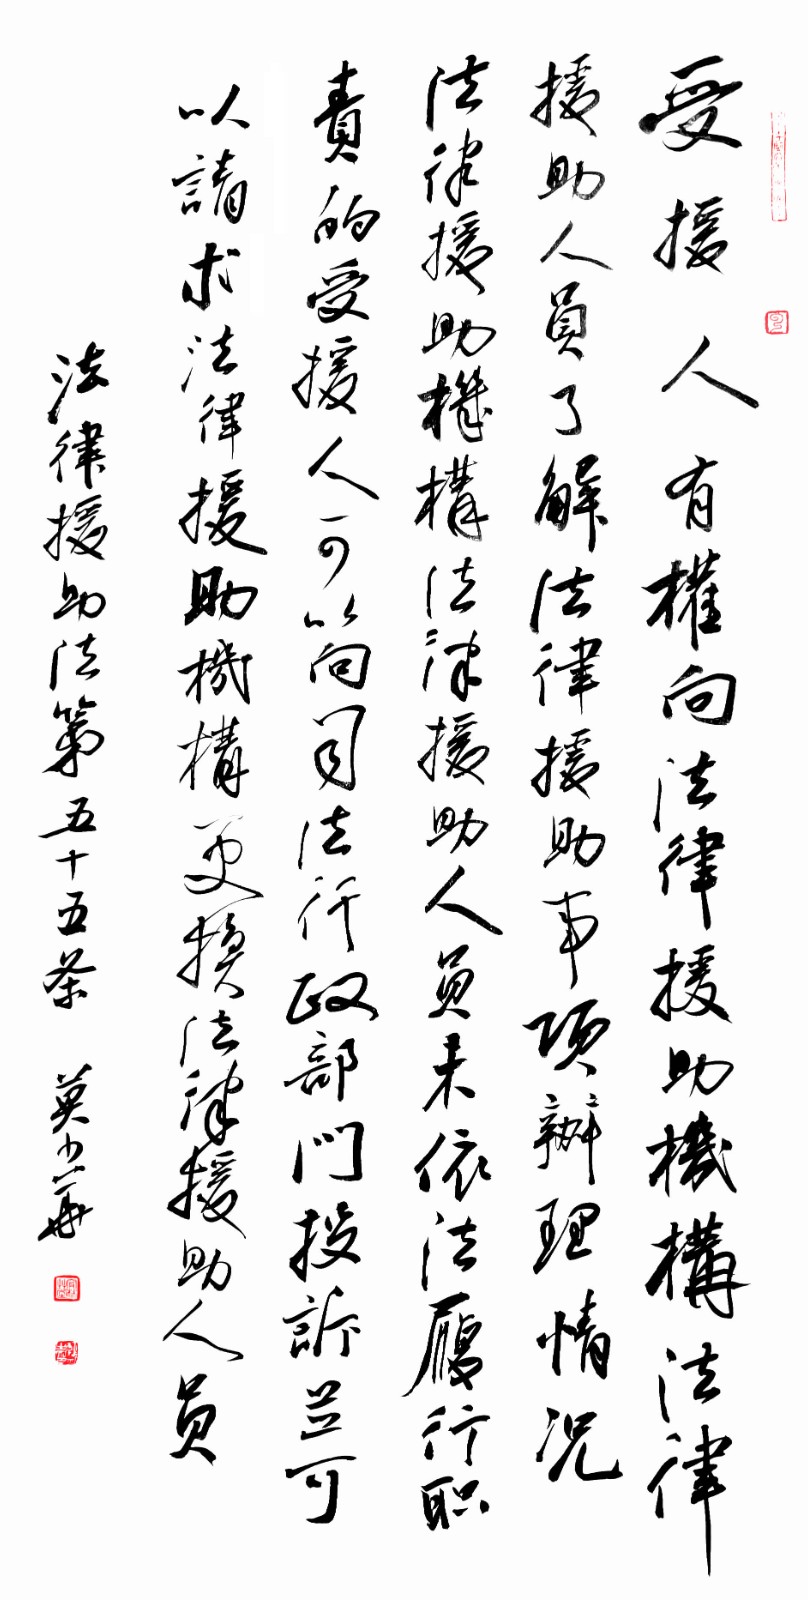 受援人有權向法律援助機構法律
援助人員了解法律援助事項辦理情况
法律援助機構法律援助人員未依法履行职
責的受援人可以向司法行政部門投訴並可
以請求法律援助機構更換法律援助人員
法律援助法第五十五条 莫少華